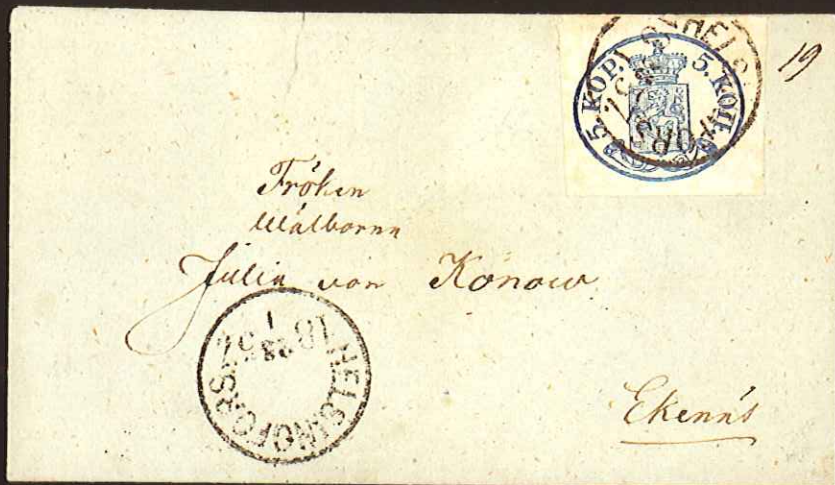 5. KOP. 5. КОП.
HELSINGFORS
19
Fröken
Wälborna
Julia von Konow
HELSINGFORS 18 57
Ekenäs